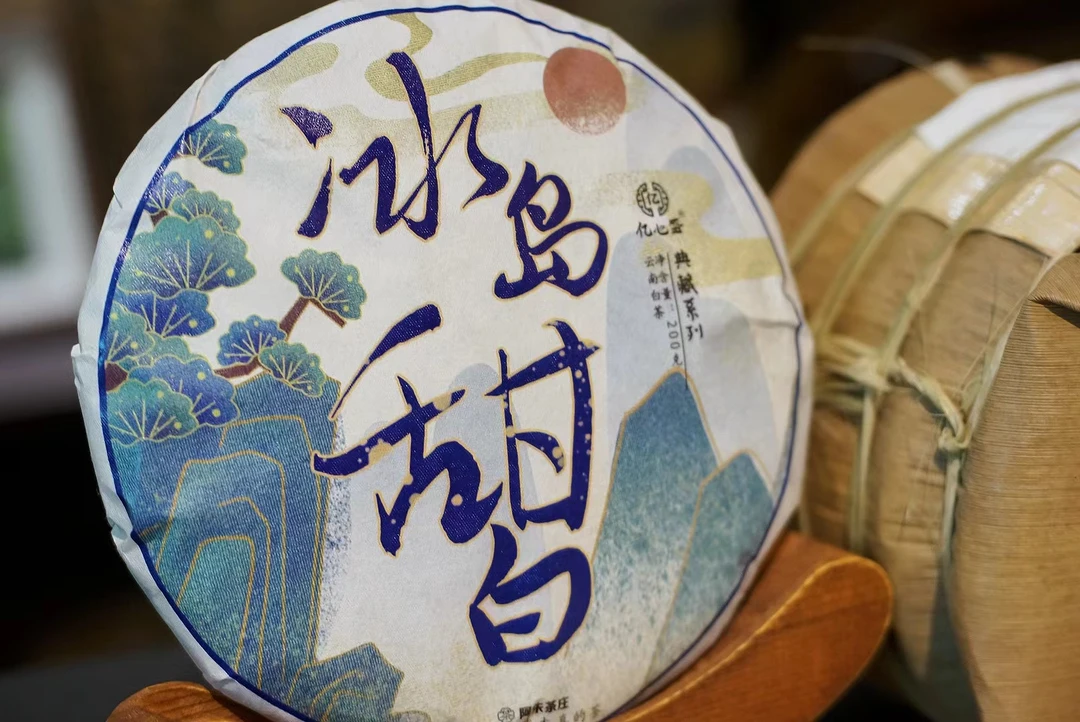 冰岛
甜
白
亿
亿七
典藏系列
净含量：200克
云南白茶
茶
阿朱茶庄
的茶